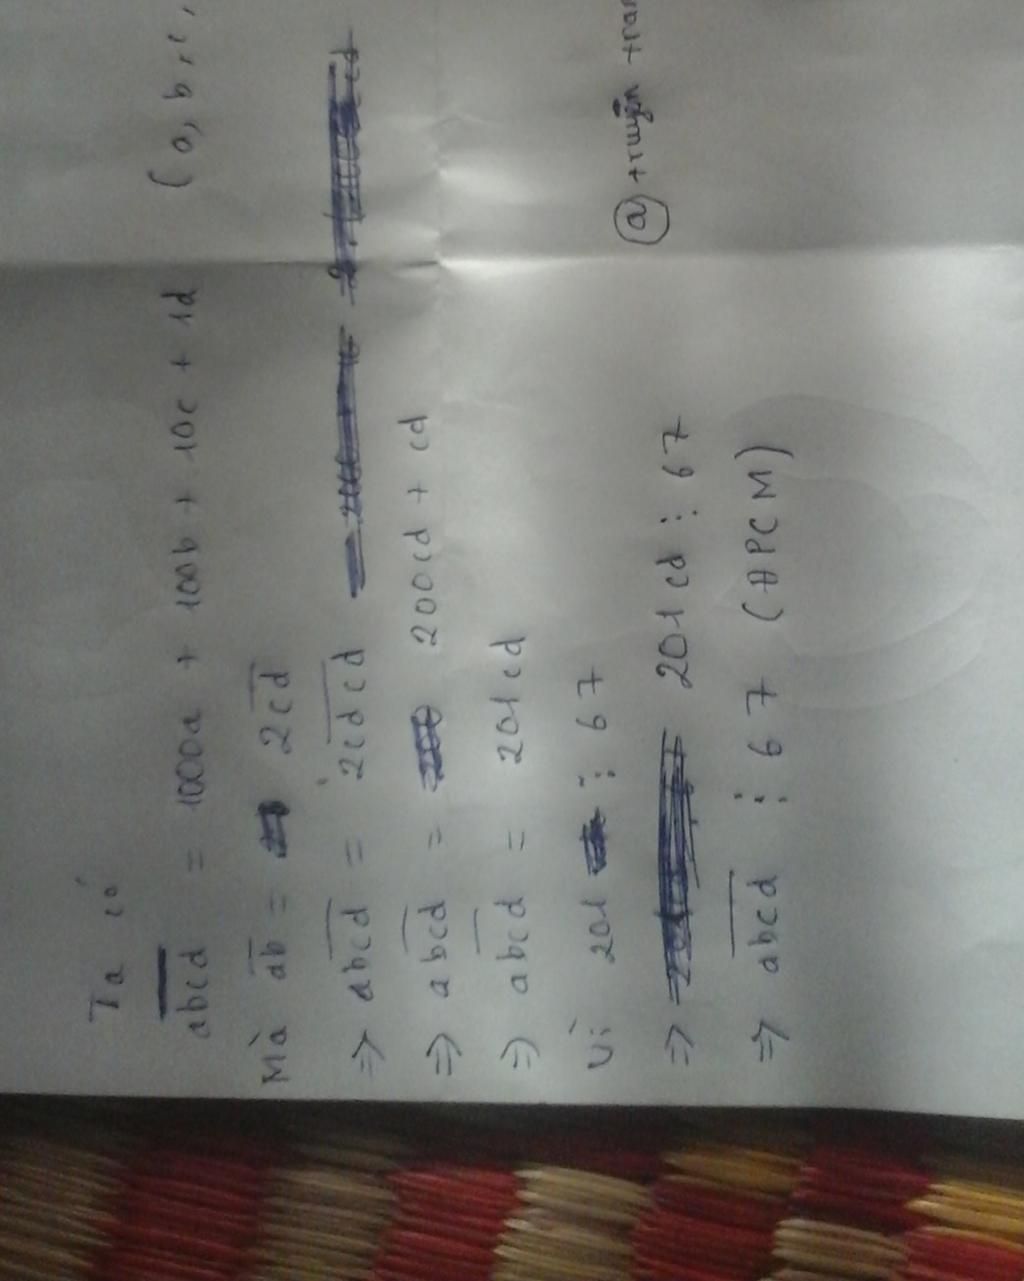 Ta có
abcd = 1000a + 100b + 10c + 1d (a, b, c,
Mà ab = 2cd
=> abcd = 2cdcd
=> abcd = 200cd + cd
=> abcd = 201cd
Vì 201 ⋮ 67
=> 201cd ⋮ 67
=> abcd ⋮ 67 (ĐPCM)
@ truyện tran